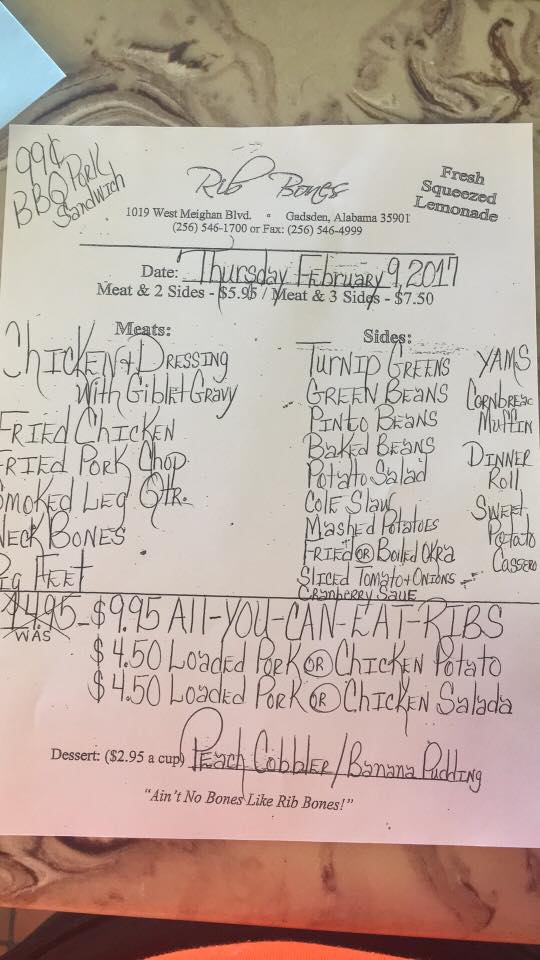 99¢
BBQ Pork
Sandwich
Rib Bones
Fresh
Squeezed
Lemonade
1019 West Meighan Blvd. • Gadsden, Alabama 35901
(256) 546-1700 or Fax: (256) 546-4999
Date: Thursday February 9, 2017
Meat & 2 Sides - $5.95 / Meat & 3 Sides - $7.50
Meats:
Chicken + Dressing
With Giblet Gravy
Fried Chicken
Fried Pork Chop
Smoked Leg Qtr.
Neck Bones
Pig Feet
Sides:
Turnip Greens
Green Beans
Pinto Beans
Baked Beans
Potato Salad
Cole Slaw
Mashed Potatoes
Fried OR Boiled Okra
Sliced Tomato + Onions
Cranberry Saue
Yams
Cornbread
Muffin
Dinner
Roll
Sweet
Potato
Cassero
$14.95 - $9.95 All-You-Can-Eat-Ribs
WAS
$4.50 Loaded Pork OR Chicken Potato
$4.50 Loaded Pork OR Chicken Salada
Dessert: ($2.95 a cup) Peach Cobbler / Banana Pudding
"Ain't No Bones Like Rib Bones!"